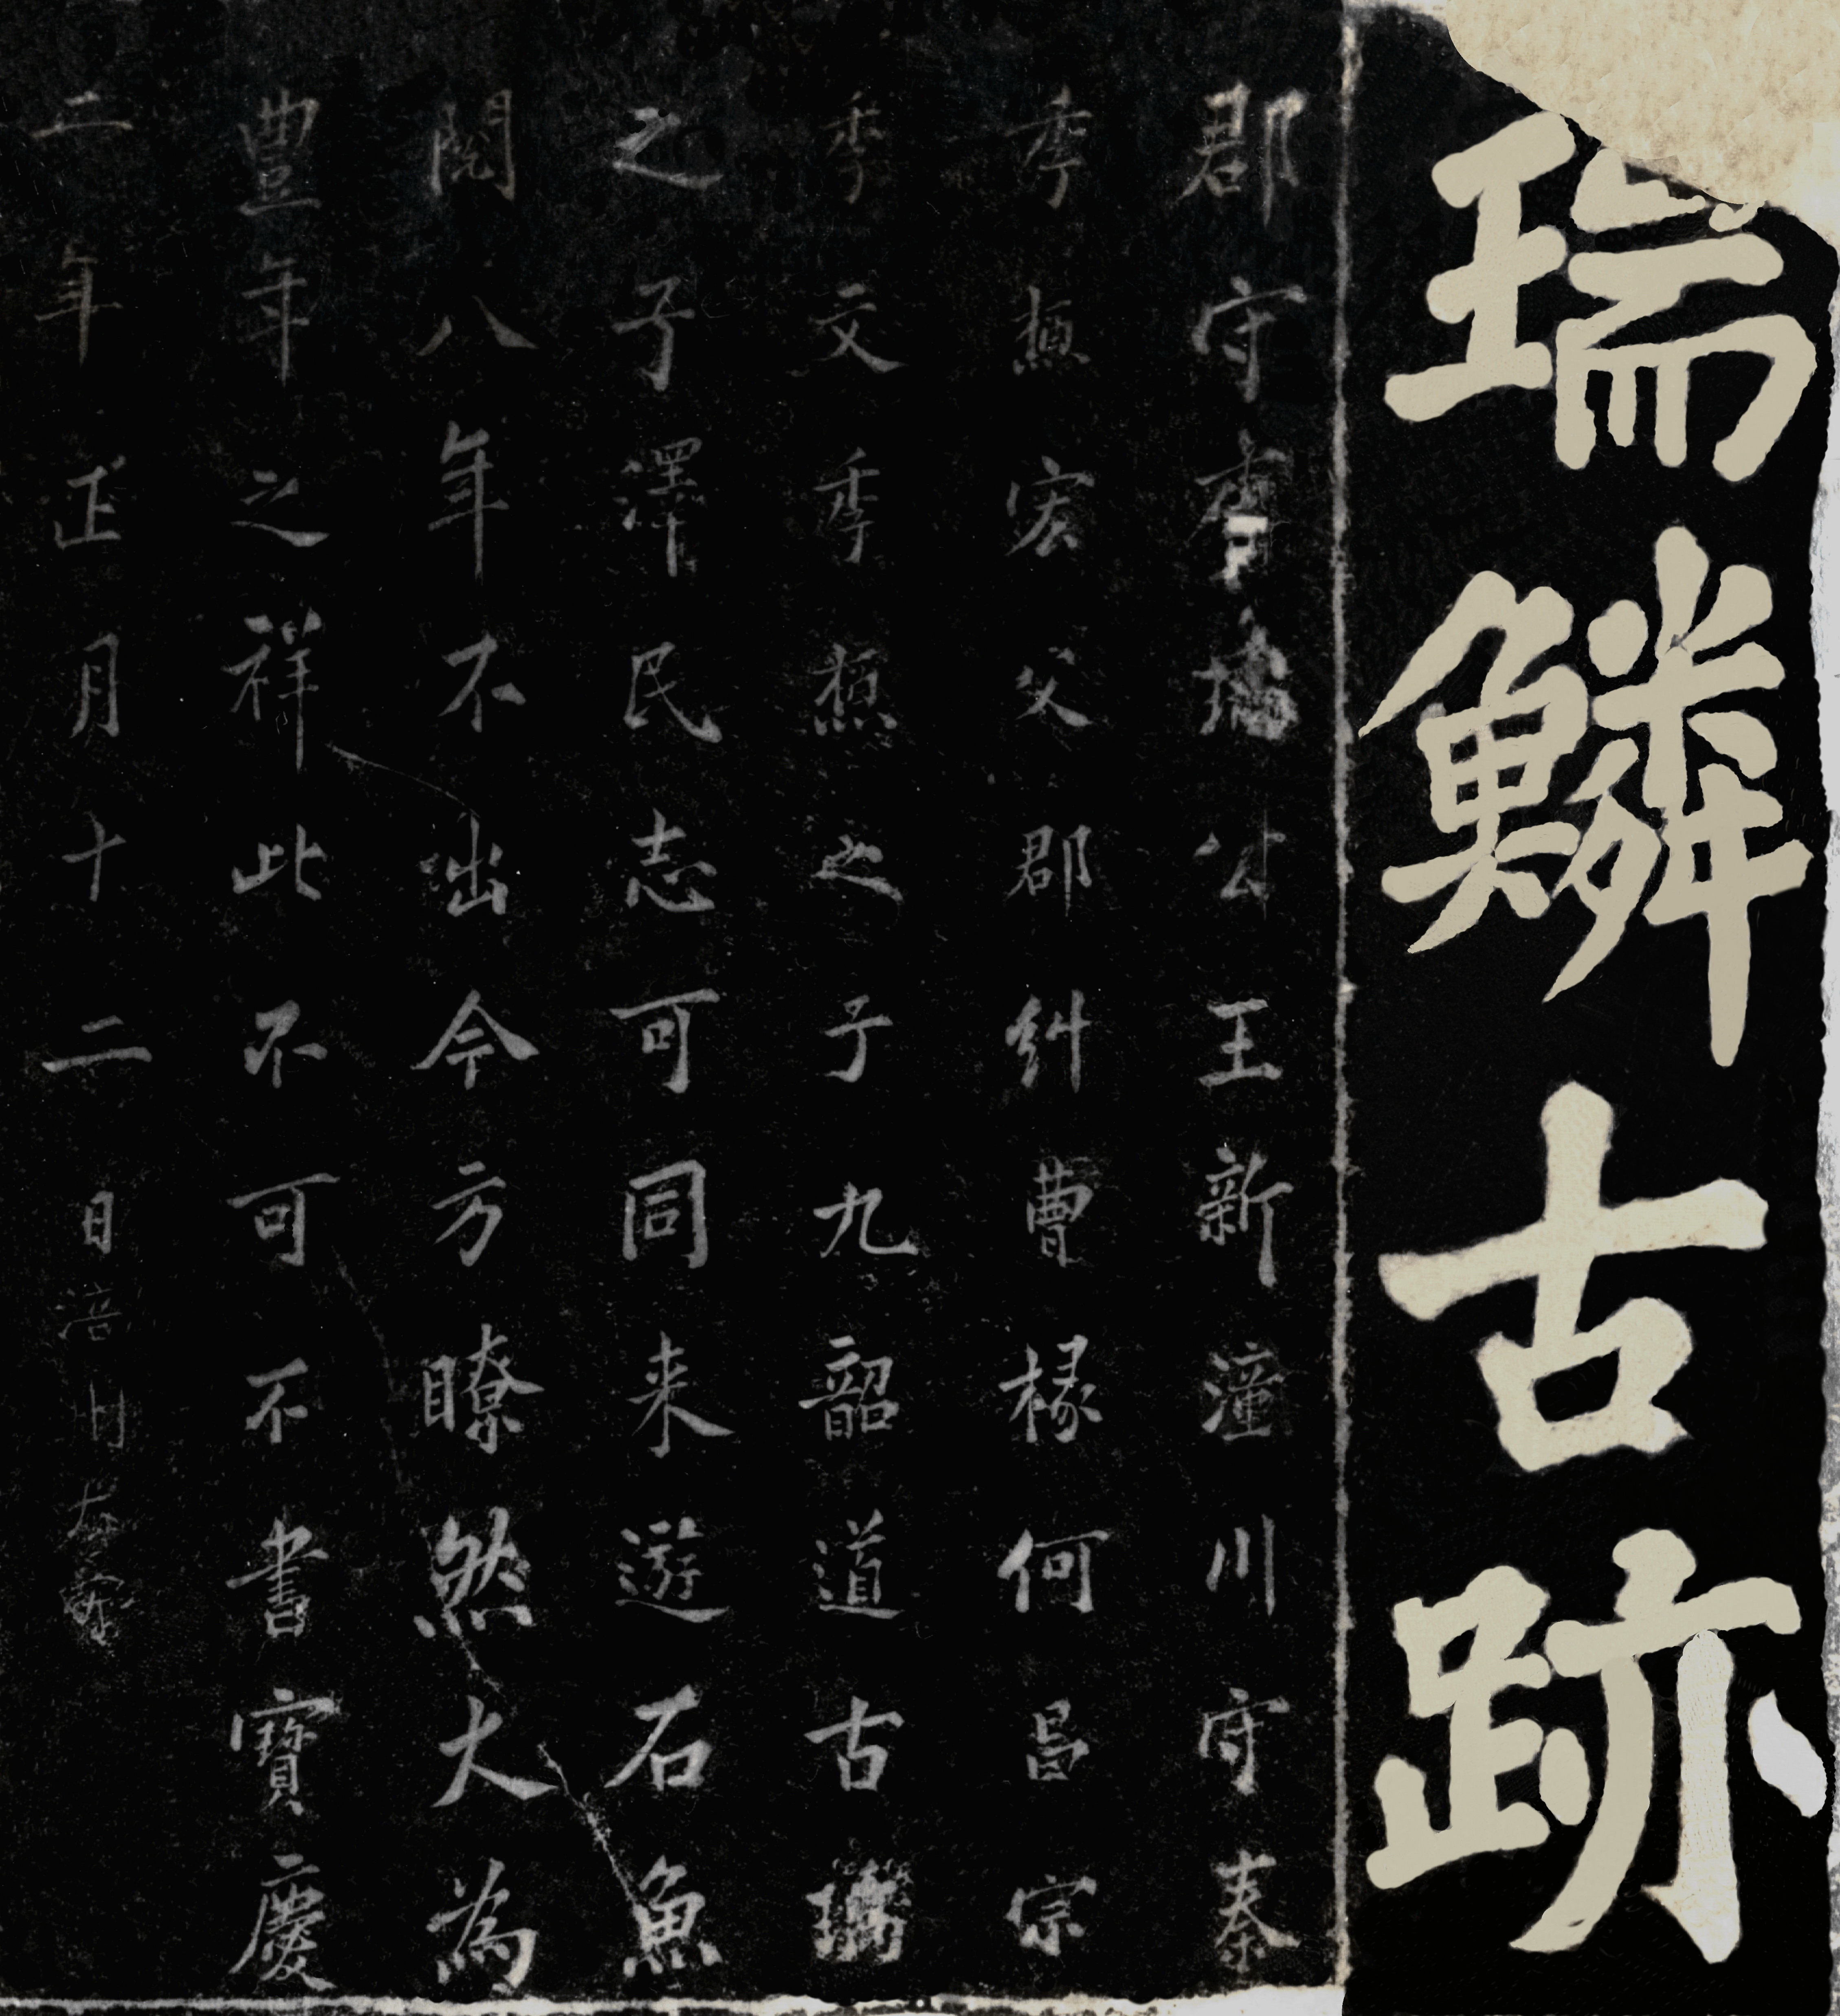 瑞鱗古跡
郡守李瑀公王新潼川守秦
季槱宏父郡糾曹椽何昌宗
季文季槱之子九韶道古瑀
之子澤民志可同来遊石魚
閱八年不出今方瞭然大為
豊年之祥此不可不書寶慶
二年正月十二日涪